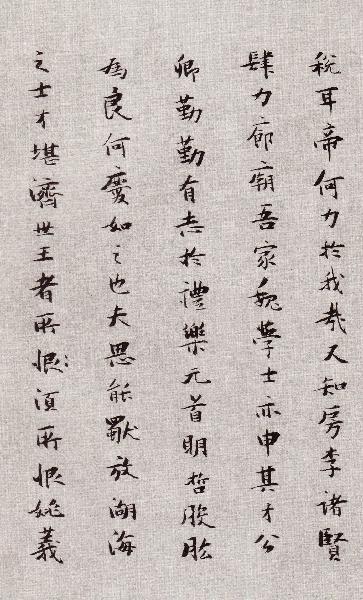 税耳帝何力於我哉又知房李諸賢
肆力廊廟吾家魏學士亦申其才公
卿勤勤有志於禮樂元首明哲股肱
為良何慶如之也夫思能獸放湖海
之士才堪濟世王者所恨須所恨姚義